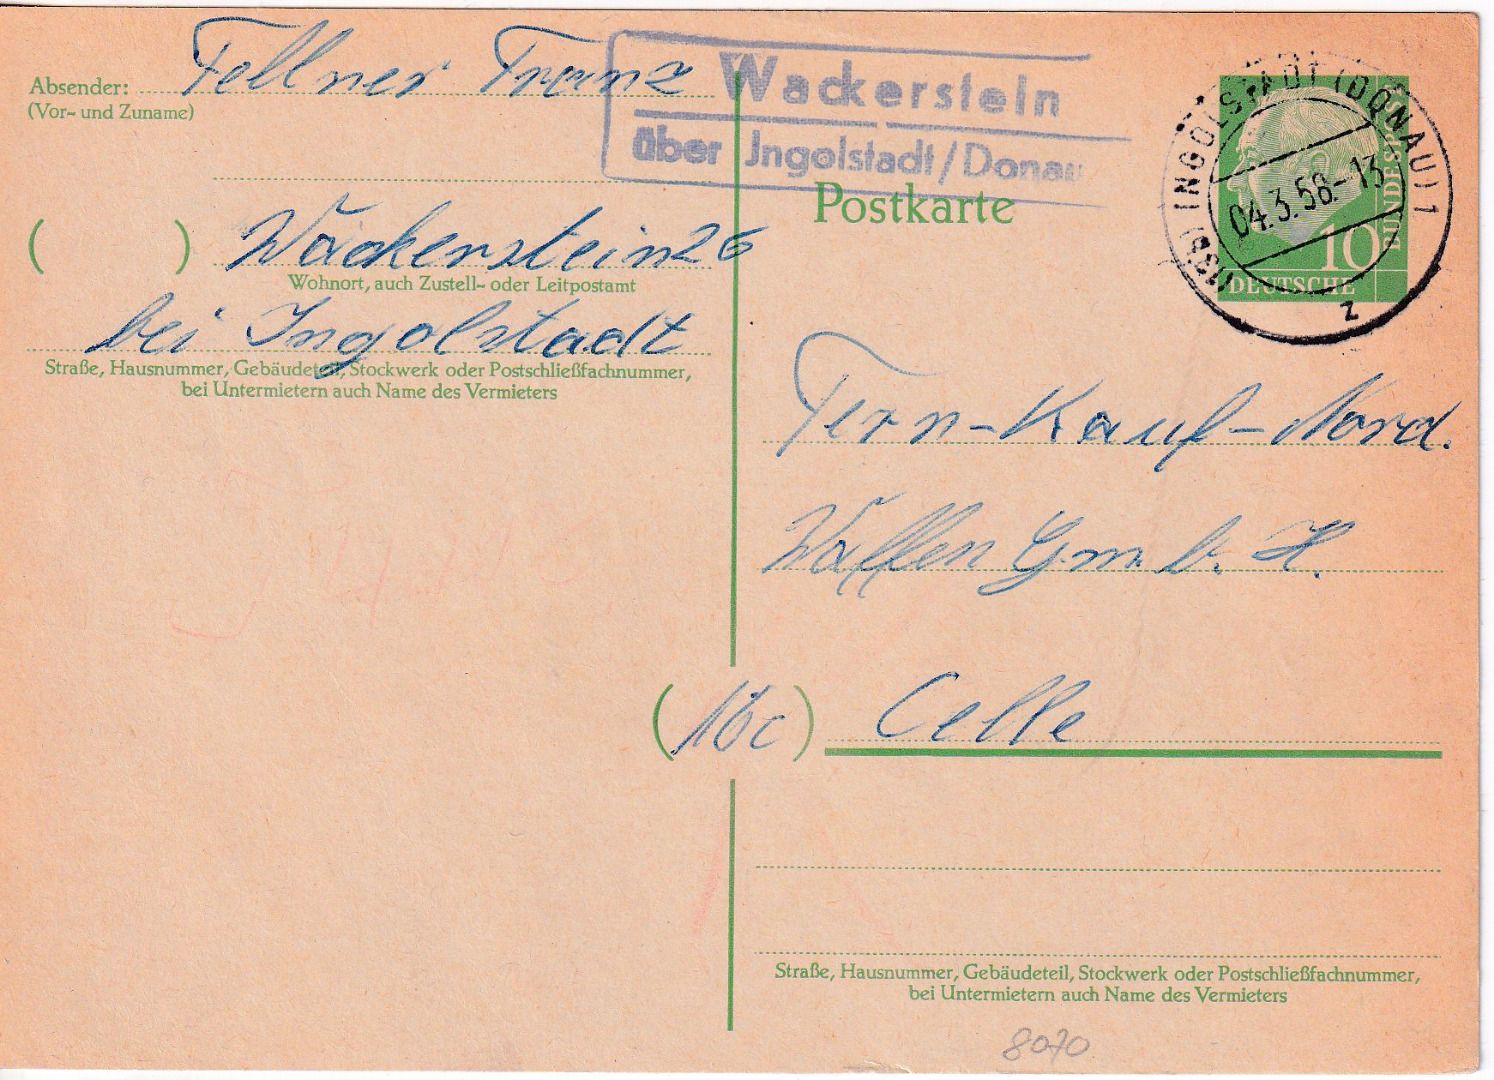 Absender: Fellner Franz
(Vor- und Zuname)
Wackerstein
über Ingolstadt/Donau
(13b) INGOLSTADT (DONAU) 1
04.3.58.-13
z
10
DEUTSCHE
BUNDESPOST
Postkarte
( ) Wackerstein 26
Wohnort, auch Zustell- oder Leitpostamt
bei Ingolstadt
Straße, Hausnummer, Gebäudeteil, Stockwerk oder Postschließfachnummer,
bei Untermietern auch Name des Vermieters
Fern-Kauf-Nord.
Waffen G.m.b.H.
(16c) Celle
Straße, Hausnummer, Gebäudeteil, Stockwerk oder Postschließfachnummer,
bei Untermietern auch Name des Vermieters
8070